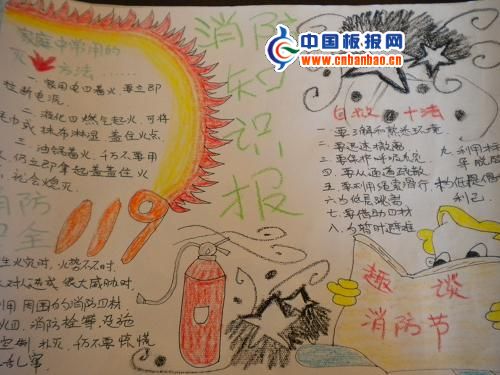 中国板报网
www.cnbanbao.cn
消防知识报
家庭中常用的
灭火方法……
一、家用电器着火 要立即
切断电源。
二、液化四燃气起火,可将
毛巾或抹布淋湿 盖住火点
三、油锅着火,仍不要用
立即拿起盖盖住火
119
消防
安全
生火灾时,火势不大时,
对人造成很大威胁时,
利用周围的消防器材
火四、消防栓等设施
控制、扑灭,仍不要惊慌
乱窜
自救 十法
一、要了解和熟悉环境
二、要迅速撤离
三、要保护呼吸
四、要从通道疏散
五、要利用绳索滑行
六、为低层跳离
七、要借助器材
八、为暂时避难
九、利用标
十、
利己。
趣谈
消防节